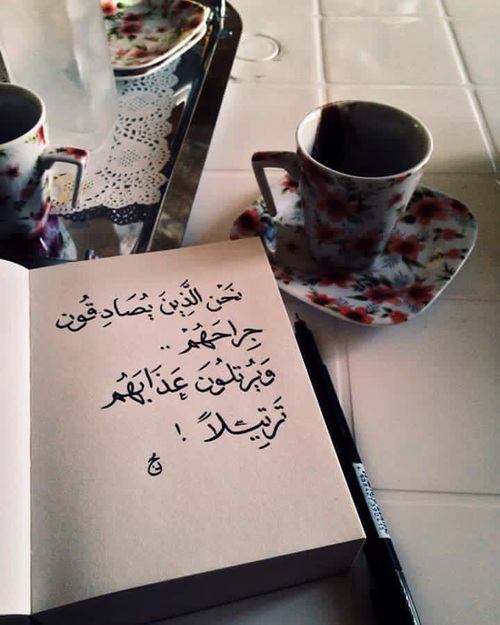 نَحْنُ الَّذِينَ يُصَادِقُون
جِراحَهُمْ ..
وَيُرَتِلُونَ عَذَابَهُم
تَرتِيْلاً !